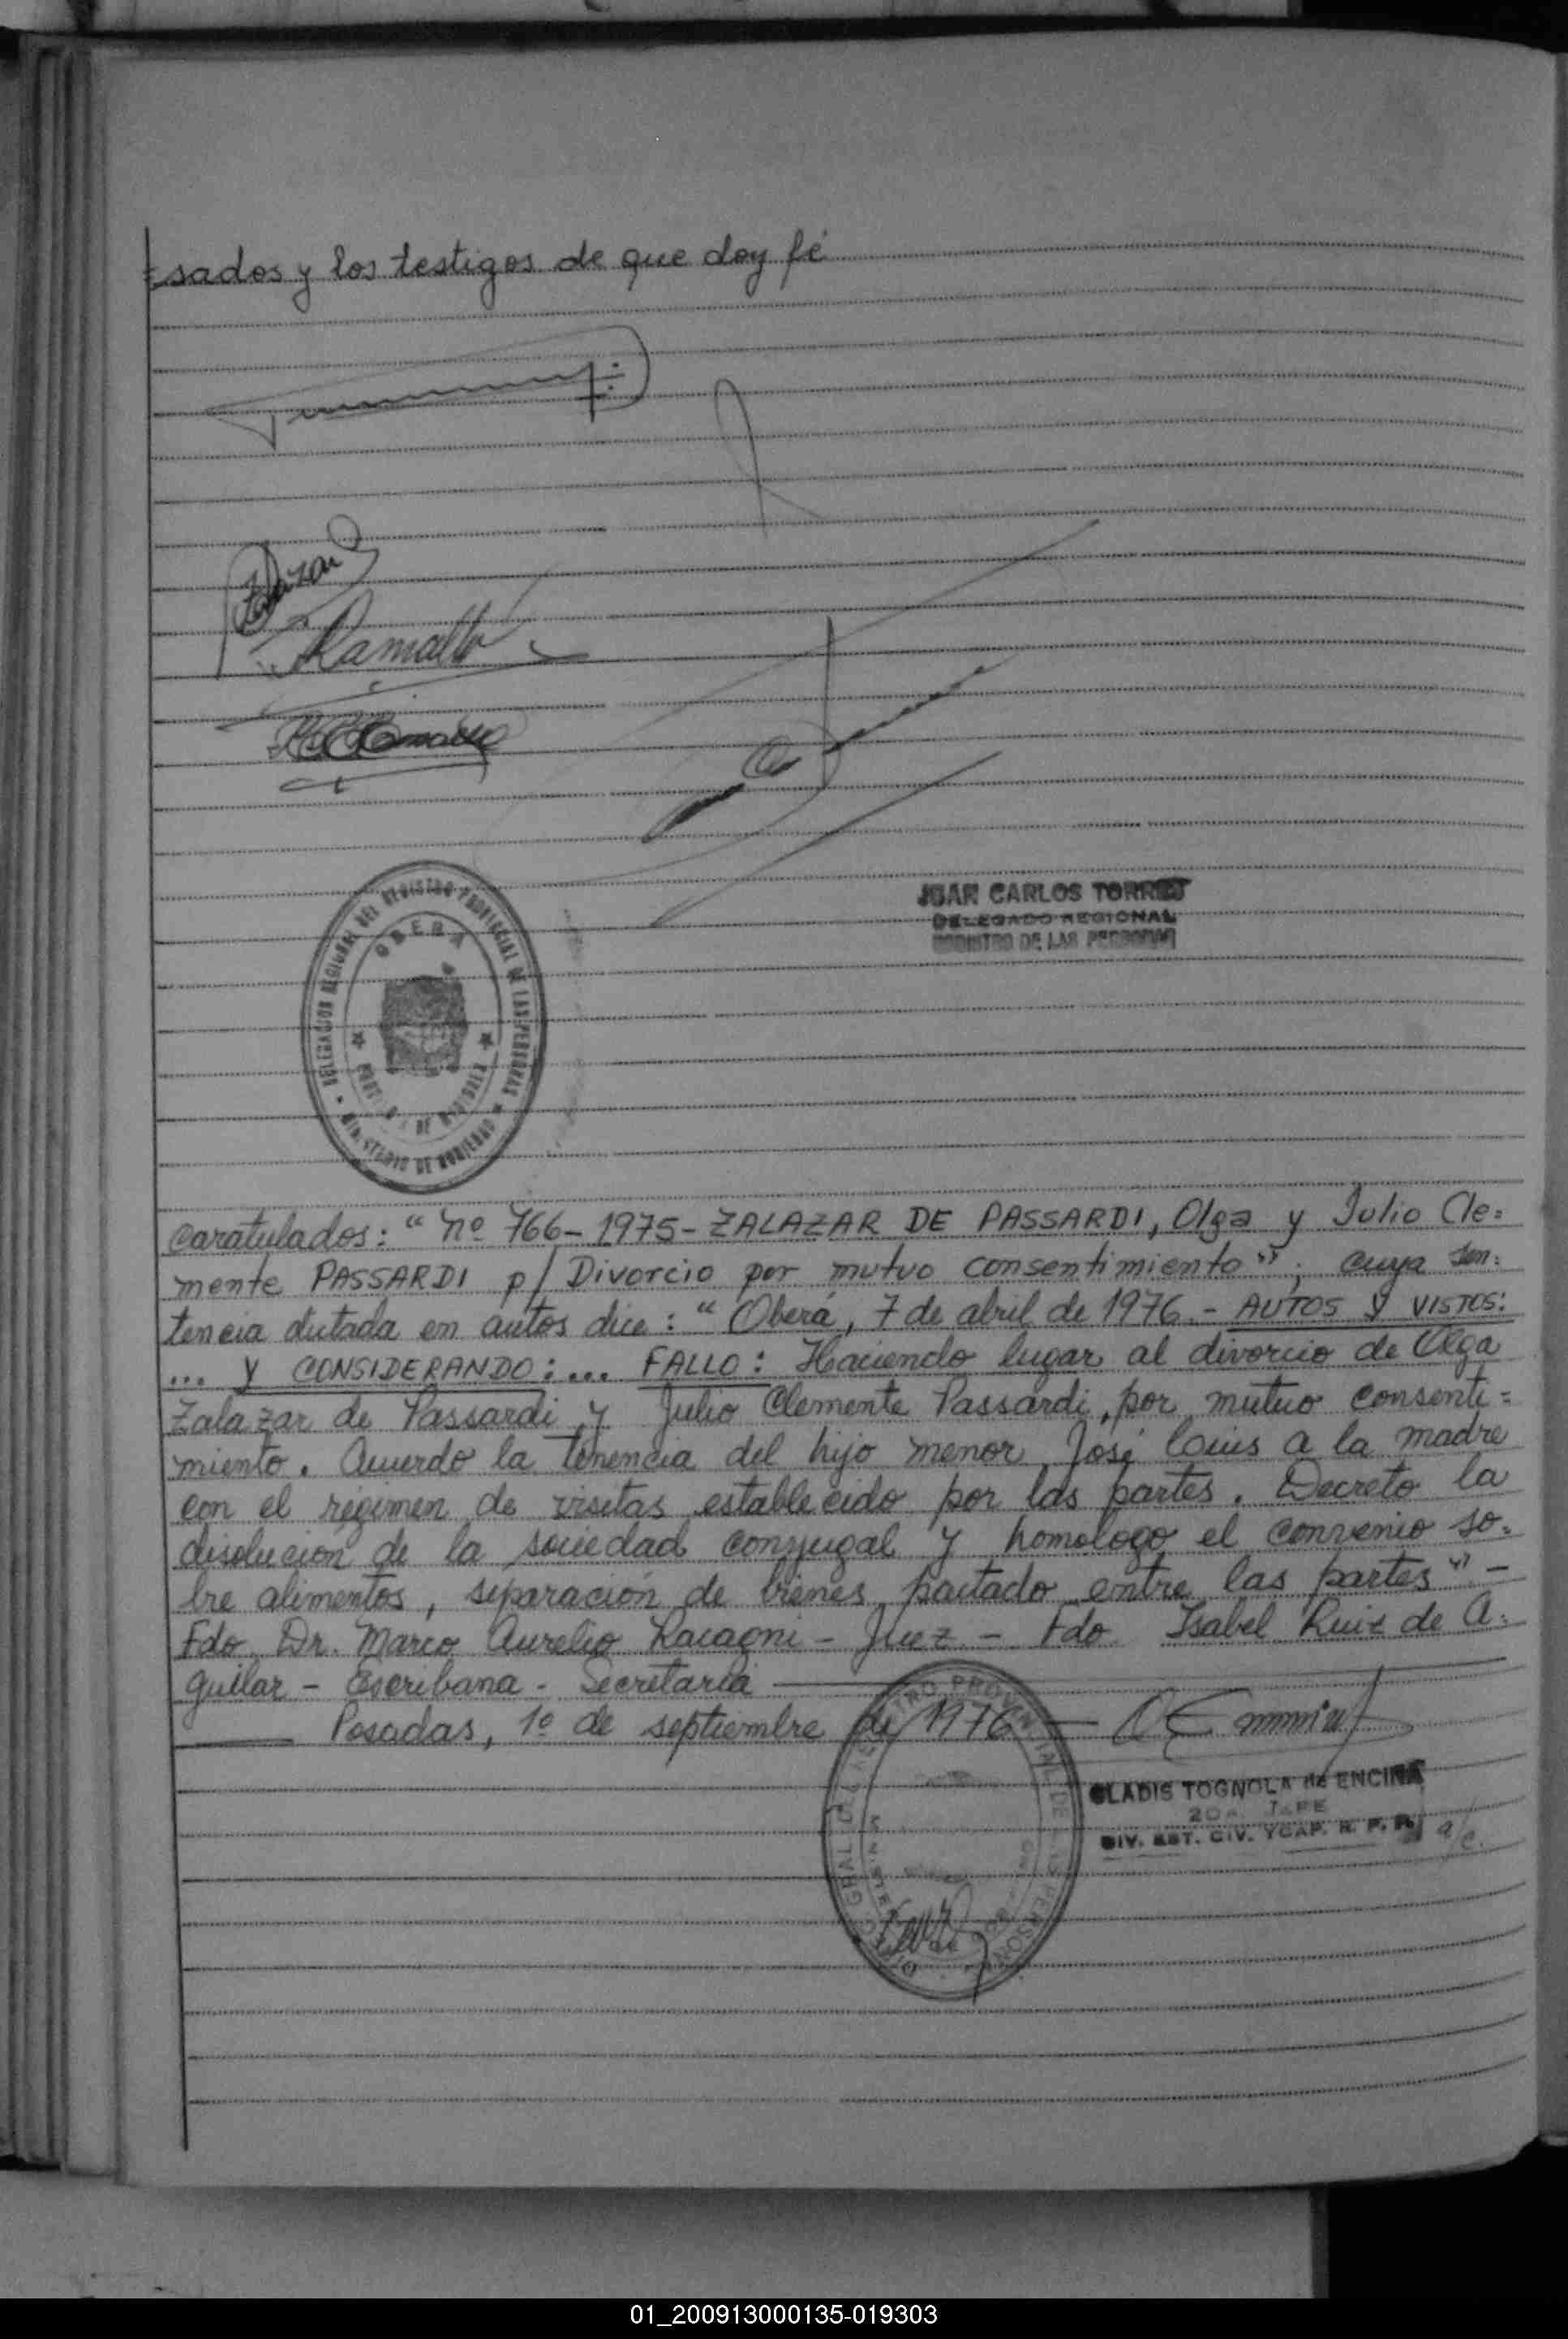 =sados y los testigos de que doy fé
Ramallo
JUAN CARLOS TORRES
DELEGADO REGIONAL
REGISTRO DE LAS PERSONAS
DELEGACION REGIONAL DEL REGISTRO PROVINCIAL DE LAS PERSONAS
OBERA
MINISTERIO DE GOBIERNO
caratulados: "nº 766-1975-ZALAZAR DE PASSARDI, Olga y Julio Cle=
mente PASSARDI p/ Divorcio por mutuo consentimiento"; cuya sen=
tencia dictada en autos dice: "Oberá, 7 de abril de 1976.- AUTOS Y VISTOS:
... Y CONSIDERANDO:... FALLO: Haciendo lugar al divorcio de Olga
Zalazar de Passardi y Julio Clemente Passardi, por mutuo consenti=
miento. Acuerdo la tenencia del hijo menor José Luis a la madre
con el régimen de visitas establecido por las partes. Decreto la
disolucion de la sociedad conyugal y homologo el convenio so=
bre alimentos, separación de bienes pactado entre las partes".-
Fdo. Dr. Marco Aurelio Racagni - Juez - Fdo. Isabel Ruiz de A=
guilar - Escribana - Secretaria
Posadas, 1º de septiembre de 1976
GLADIS TOGNOLA de ENCINA
2DA. JEFE
DIV. EST. CIV. YCAP. R. P. P. a/c.
01_200913000135-019303